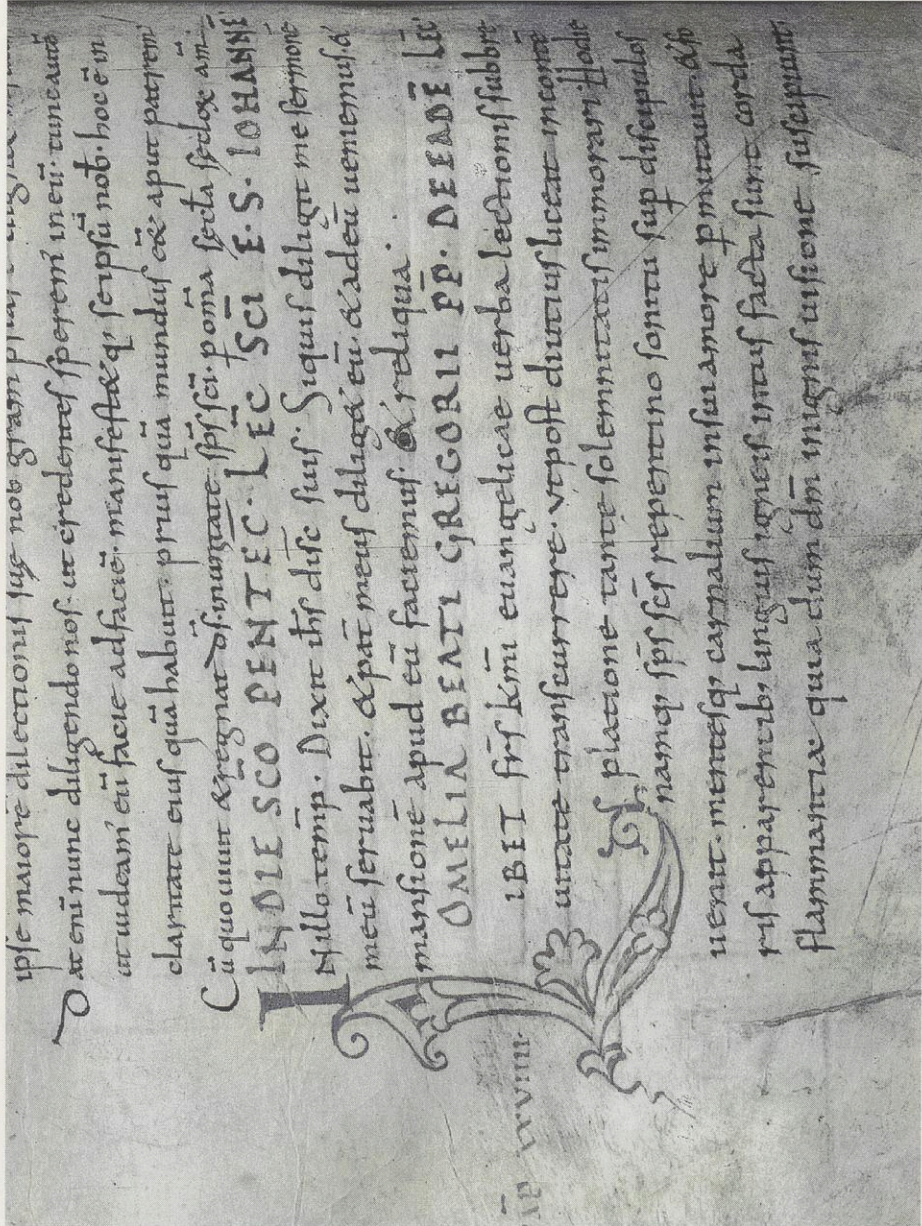 ipse maiorē dilectionis suę nob grām
Dat enī nunc diligendo nos. ut credentes speremˀ in eū. tunc autē
ut uideamˀ eū facie ad faciē. manifestat& q; seipsū nob. hoc ē in
claritate eius quā habuit prius quā mundus ee& aput patrem
Cū quo uiuit & regnat dṡ. in unitate sp̄s sc̄i. p om̄a sec̄ta sec̄lox am̄
IN DIE SCO PENTEC. LĒC SC̄I Ē. S. IOHANNĒ
IN illo temp̄. Dixit ih̄s disc̄ suis. Siquis diligit me sermonē
meū seruabit. & pat̄ meus dilig& eū. & ad eū ueniemus. &
mansionē apud eū faciemus. & reliqua.
OMELIA BEATI GREGORII P̄P. DE EADĒ LĒC
LIBET fr̄s km̄i euangelicae uerba lectionis sub bre
uitate transcurrere. ut post diutius liceat in contē
platione tantę solemnitatis immorari. Hodie
namq; sp̄s sc̄s repentino sonitu sup discipulos
uenit. mentesq; carnalium in sui amorē pmutauit. & fo
ris apparentib; linguis igneis intus facta sunt corda
flammantia. quia dum dm̄ in ignis uisione suscipiunt